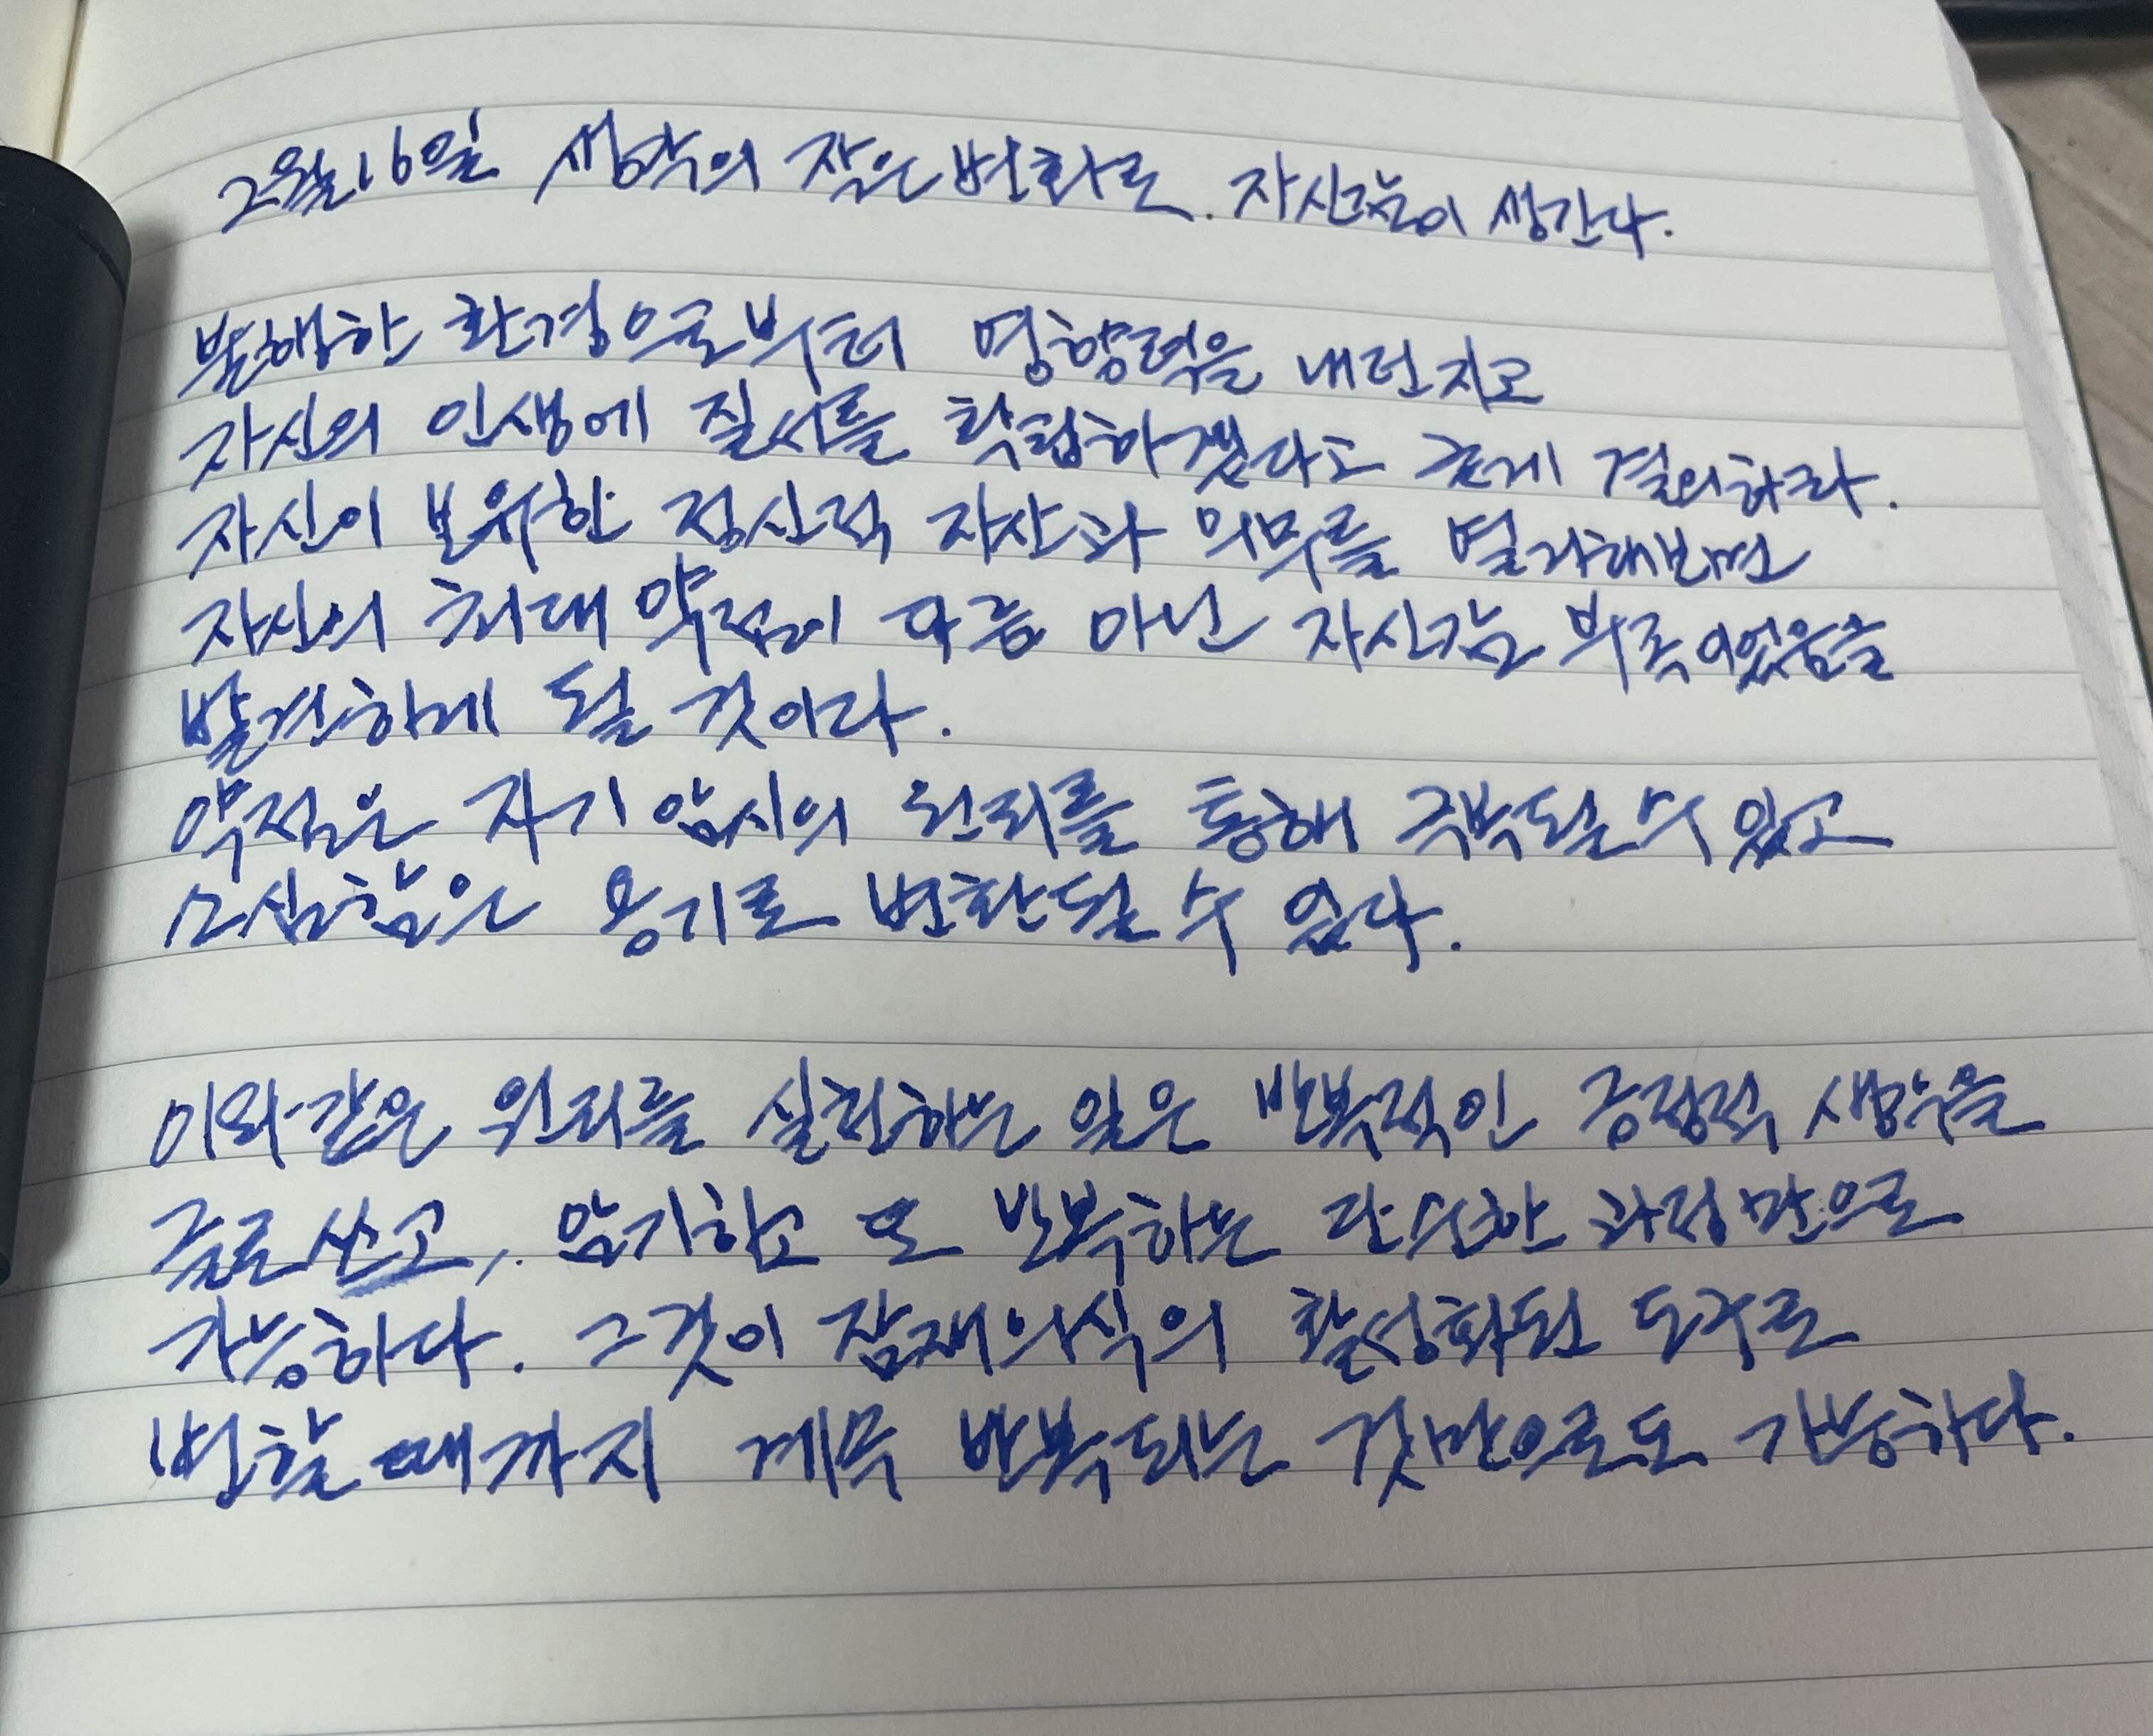 2월16일 생각의 작은 변화로. 자신감이 생긴다.
불행한 환경으로부터 영향력을 내던지고
자신의 인생에 질서를 확립하겠다고 굳게 결의하라.
자신이 보유한 정신적 자산과 의무를 열거해보면
자신의 최대 약점이 다름 아닌 자신감 부족이었음을
발견하게 될 것이다.
약점은 자기 암시의 원리를 통해 극복될 수 있고
소심함은 용기로 변환될 수 있다.
이와 같은 원리를 실현하는 일은 반복적인 긍정적 생각을
글로 쓰고, 암기하고 또 반복하는 단순한 과정만으로
가능하다. 그것이 잠재의식의 활성화된 도구로
변할 때까지 계속 반복되는 것만으로도 가능하다.